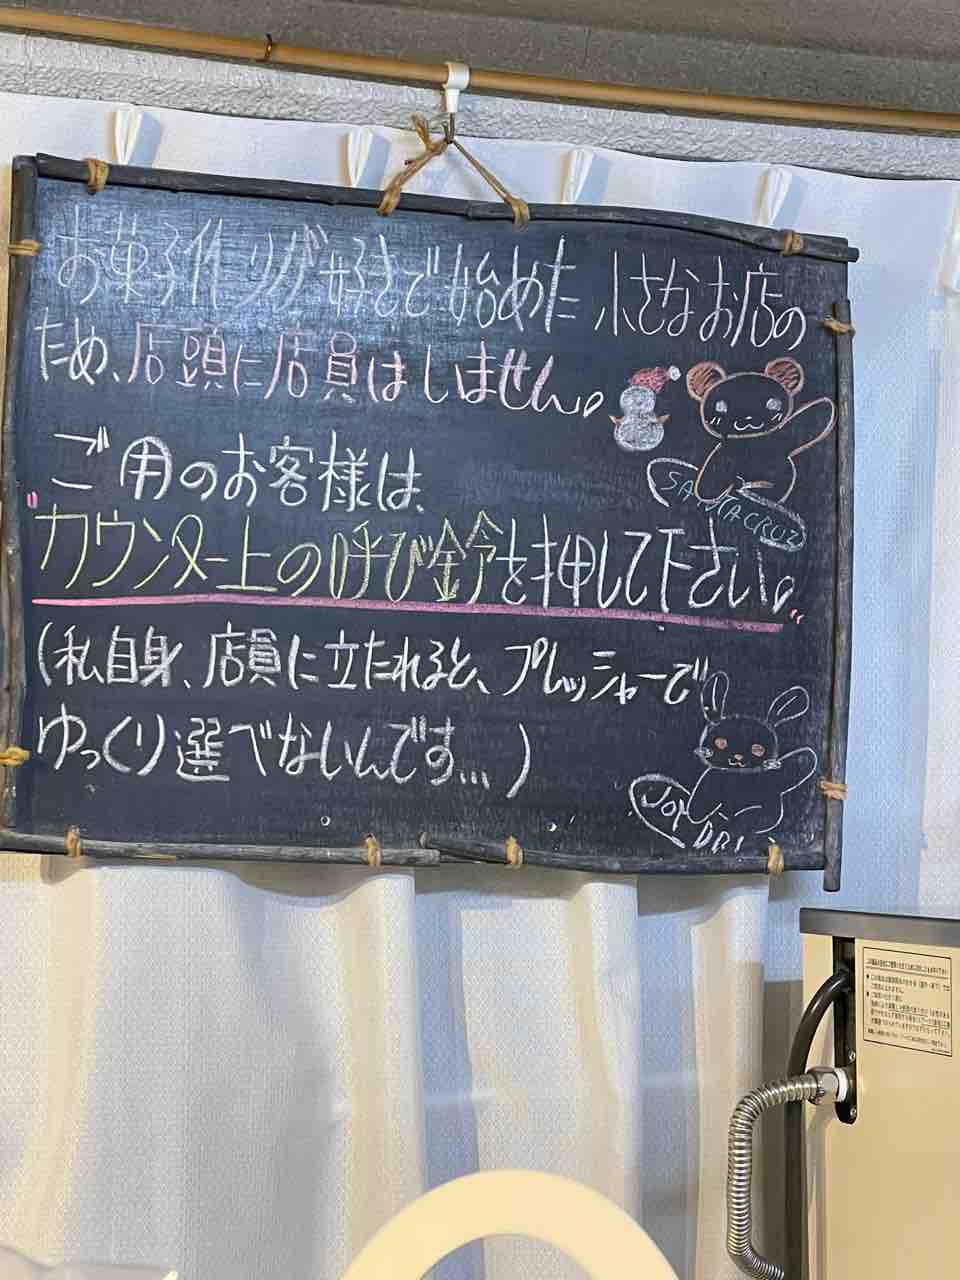 お菓子作りが好きで始めた 小さなお店の
ため、店頭に店員はしません。
SANTACRUZ
ご用のお客様は、
"カウンター上の呼び鈴を押して下さい。"
(私自身、店員に立たれると、プレッシャーで
ゆっくり選べないんです…)